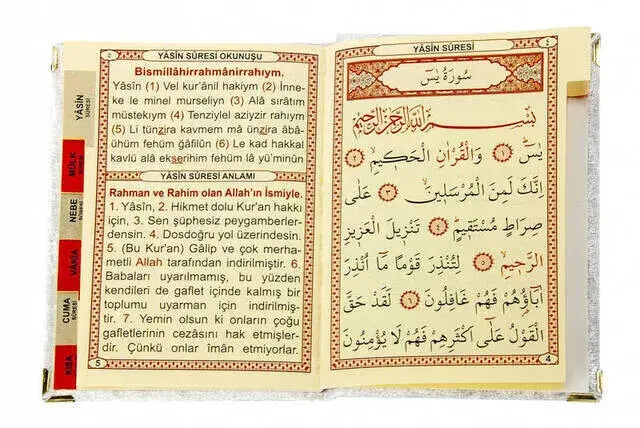 YÂSİN
SÛRESİ
MÜLK
SÛRESİ
NEBE
SÛRESİ
VÂKIA
CUMA
SÛRESİ
KISA
٥
YÂSİN SÛRESİ OKUNUŞU
Bismillâhirrahmânirrahıym.
Yâsîn (1) Vel kur'ânil hakiym (2) İnne-
ke le minel murseliyn (3) Alâ sırâtım
müstekıym (4) Tenziylel aziyzir rahıym
(5) Li tünzira kavmem mâ ünzira âbâ-
ühüm fehüm ğâfilûn (6) Le kad hakkal
kavlü alâ ekserihim fehüm lâ yü'minûn
YÂSİN SÛRESİ ANLAMI
Rahman ve Rahim olan Allah'ın İsmiyle.
1. Yâsîn, 2. Hikmet dolu Kur'an hakkı
için, 3. Sen şüphesiz peygamberler-
densin. 4. Dosdoğru yol üzerindesin.
5. (Bu Kur'an) Gâlip ve çok merha-
metli Allah tarafından indirilmiştir. 6.
Babaları uyarılmamış, bu yüzden
kendileri de gaflet içinde kalmış bir
toplumu uyarman için indirilmiş-
tir. 7. Yemin olsun ki onların çoğu
gafletlerinin cezâsını hak etmişler-
dir. Çünkü onlar îmân etmiyorlar.
5
YÂSİN SÛRESİ
٤
سُورَةُ يٰسٓ
بِسْمِ اللّٰهِ الرَّحْمٰنِ الرَّحِيمِ
يٰسٓ ﴿١﴾ وَالْقُرْاٰنِ الْحَكِيمِ ﴿٢﴾
اِنَّكَ لَمِنَ الْمُرْسَلِينَ ﴿٣﴾ عَلٰى
صِرَاطٍ مُسْتَقِيمٍ ﴿٤﴾ تَنْزِيلَ الْعَزِيزِ
الرَّحِيمِ ﴿٥﴾ لِتُنْذِرَ قَوْمًا مَٓا اُنْذِرَ
اٰبَٓاؤُ۬هُمْ فَهُمْ غَافِلُونَ ﴿٦﴾ لَقَدْ حَقَّ
الْقَوْلُ عَلٰٓى اَكْثَرِهِمْ فَهُمْ لَا يُؤْمِنُونَ
4